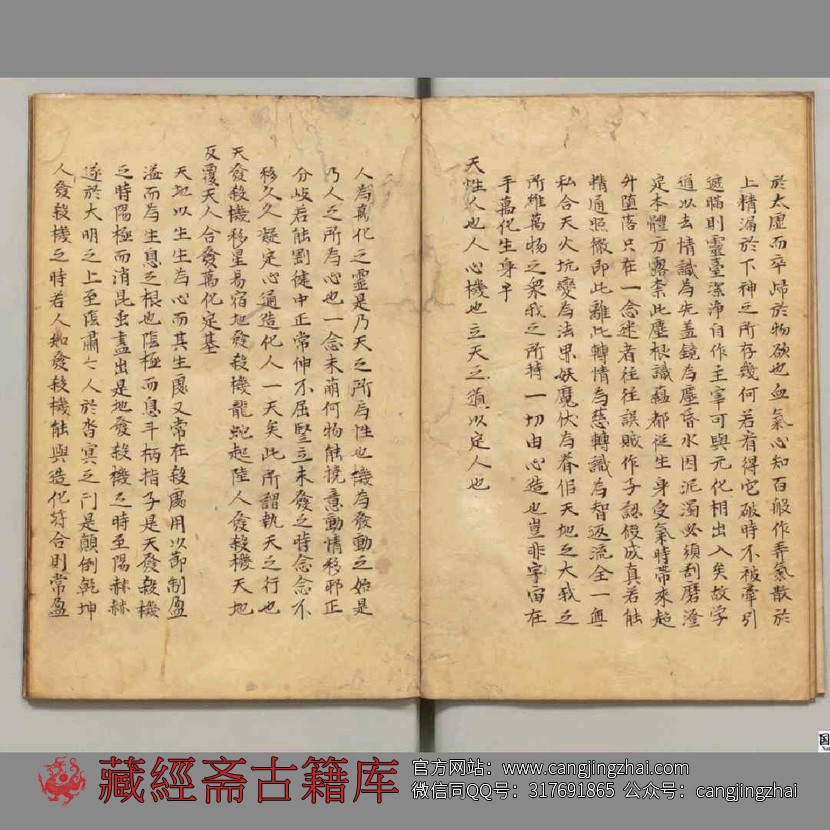 於太虛而卒歸於物欲也血氣心知百般作弄氣散於
上精漏於下神之所存幾何若看得它破時不被牽引
遮瞞則靈臺潔淨自作主宰可與元化相出入矣故学
道以去情識為先盖鏡為塵昏水因泥濁必須刮磨澄
定本體方露柰此塵根識蘊都從生身受氣時帶來超
升堕落只在一念迷者往往誤賊作子認假成真若能
精通照徹即此離此轉情為慈轉識為智返流全一與
私合天火坑變為法界妖魔伏為眷侣天地之大我之
所維萬物之衆我之所持一切由心造也豈非宇宙在
手萬化生身乎
天性人也人心機也立天之道以定人也
人為萬化之靈是乃天之所為性也機為發動之始是
乃人之所為心也一念未萌何物能撓意動情移邪正
分岐若能劉徒中正常伸不屈豎立未發之時念念不
移久久凝定心通造化人一天矣此所謂執天之行也
天發殺機移星易宿地發殺機龍蛇起陸人發殺機天地
反覆天人合發萬化定基
天地以生生為心而其生處又常在殺處用以節制盈
溢而為生息之根也陰極而息斗柄指子是天發殺機
之時陽極而消昆虫盡出是地發殺機之時至陽赫赫
遂於大明之上至陰肅肅入於杳冥之門是顛倒乾坤
人發殺機之時若人知發殺機能與造化符合則常盈
藏經斋古籍库
官方网站：www.cangjingzhai.com
微信同QQ号：317691865 公众号：cangjingzhai
国